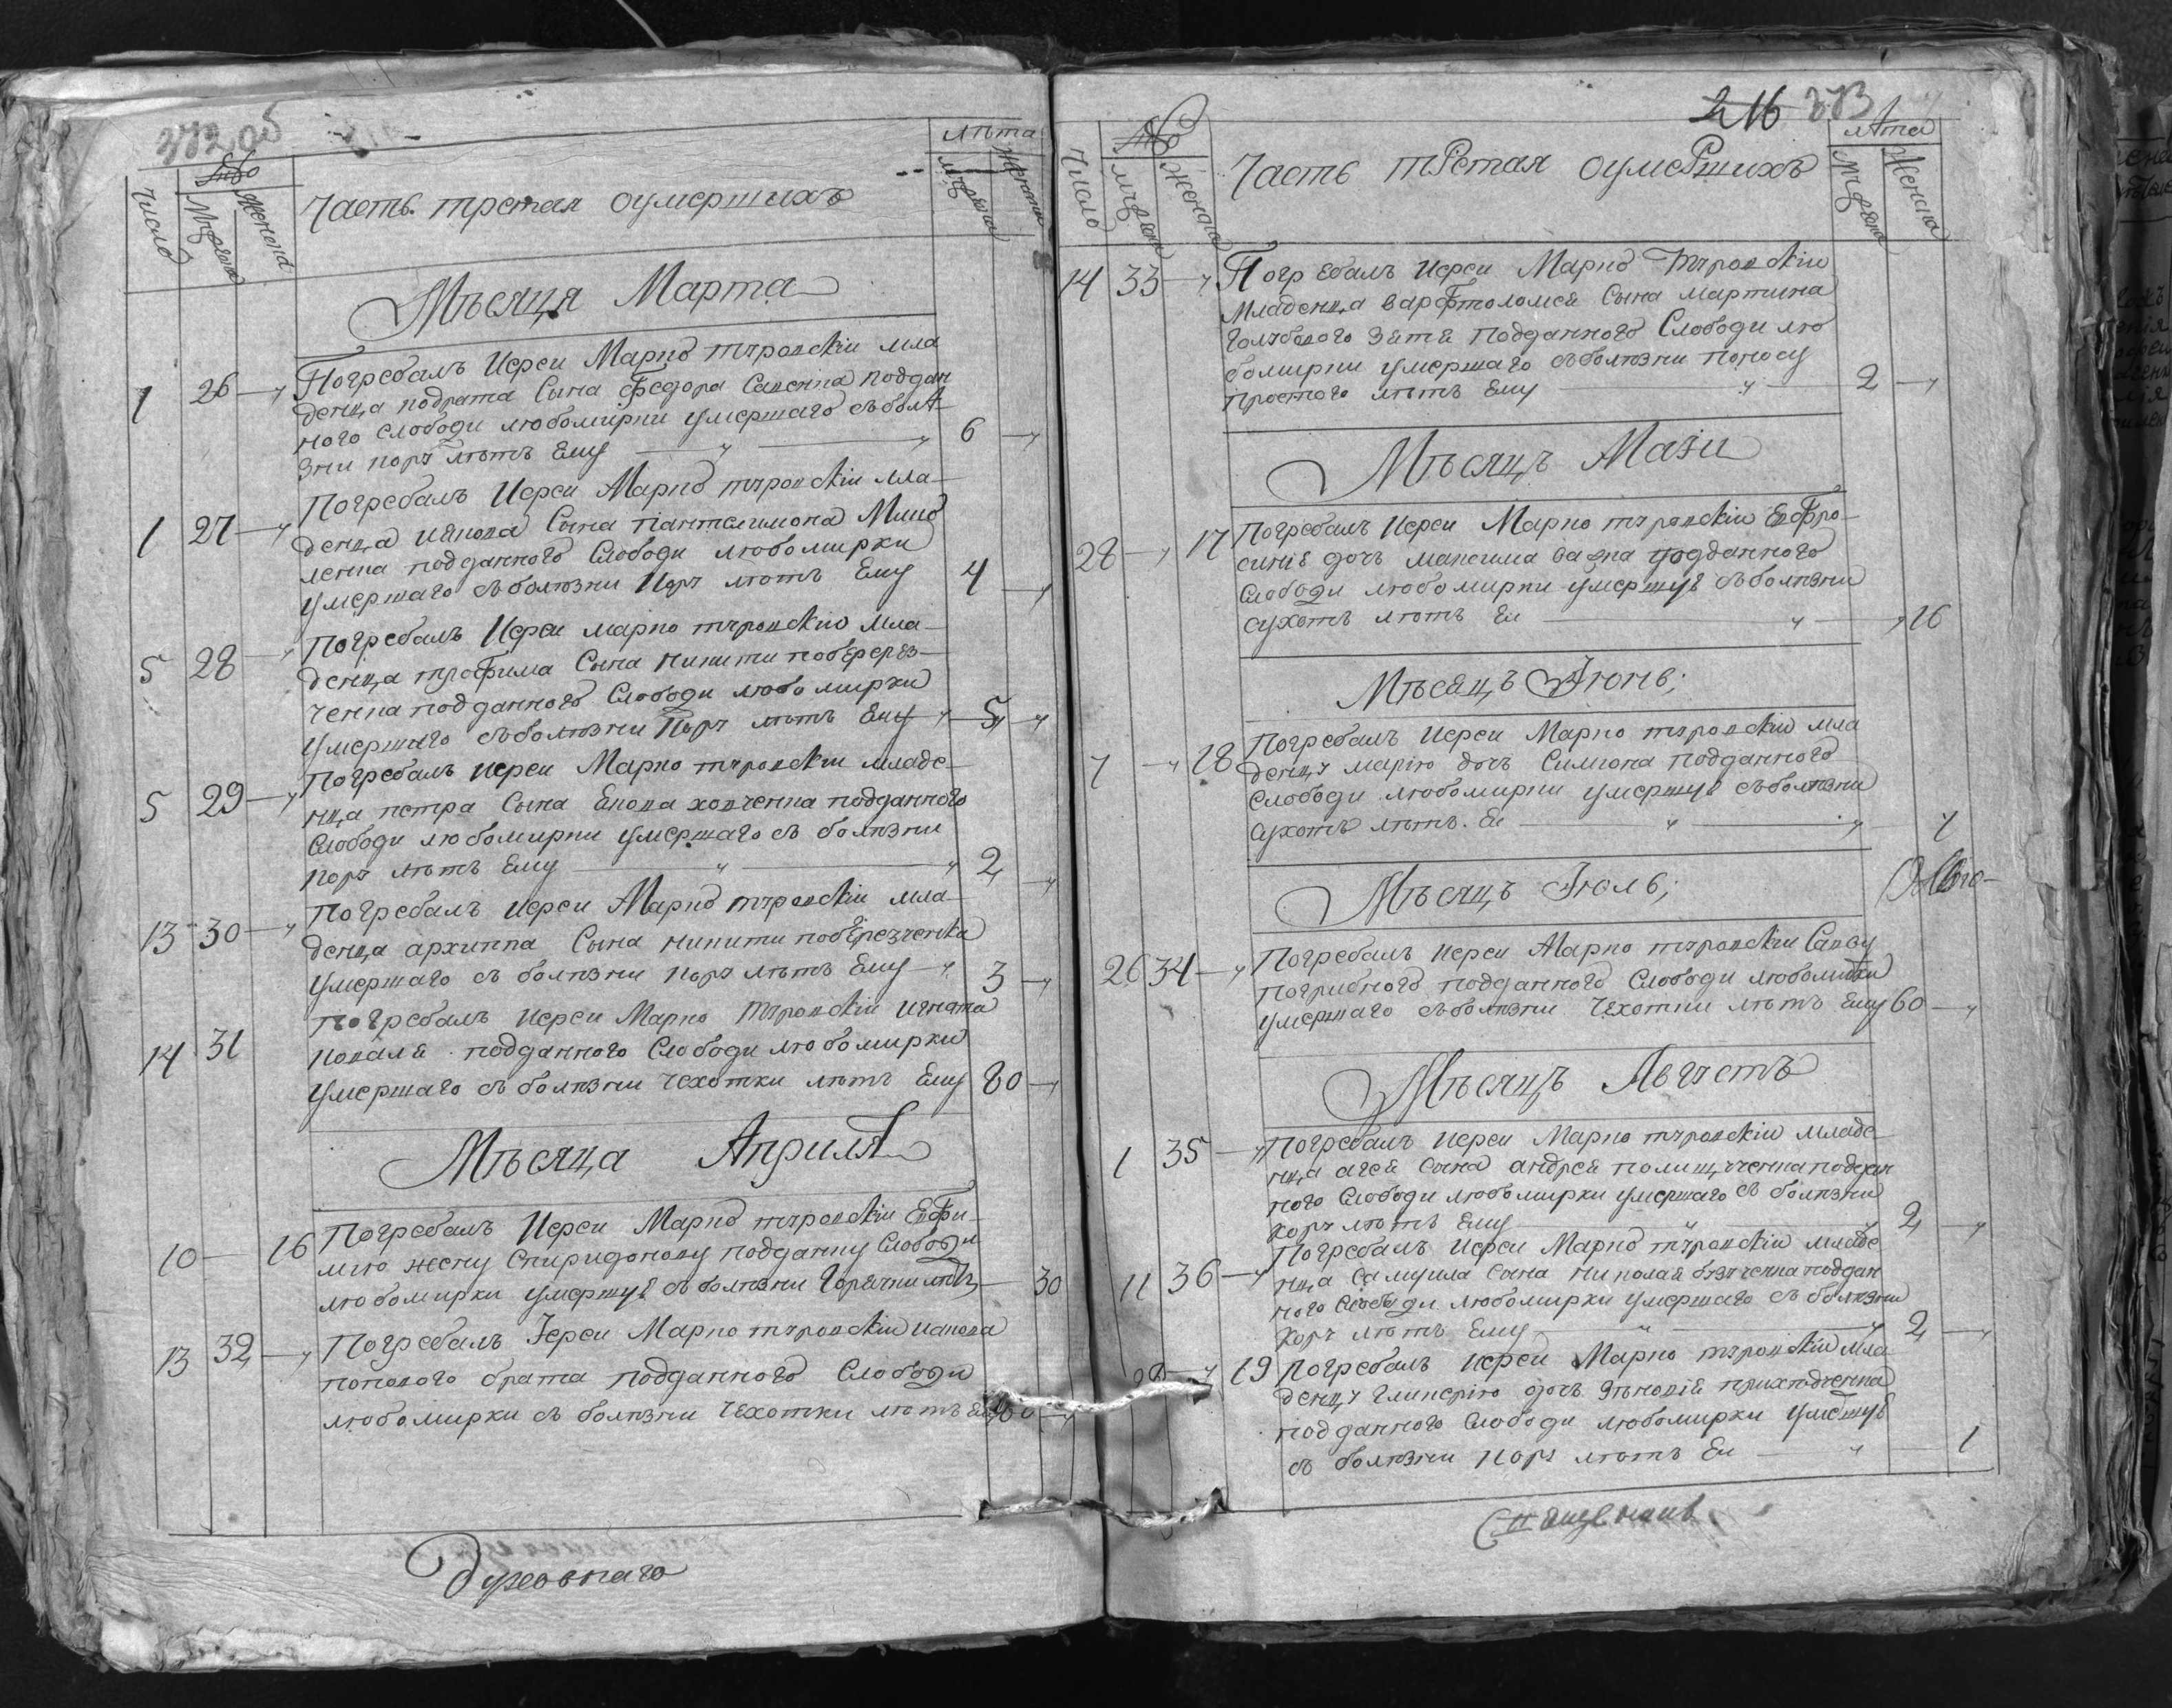 372 об
Число
Мужеска
Женска
Часть третая оумершихъ
лѣта
Мужеска
Женска
Мѣсяця Марта
1 26 Погребалъ Иереи Марко туровскiи мла
денца кодрата Сына Федора Савенка поддан
ного слободи любомирки умершаго съ болѣ
зни кору лѣтъ Ему 6
1 27 Погребалъ Иереи Марко туровскiи мла
денца Иякова Сына Пантелимона
ленка подданного Слободи любомирки
умершаго съ болѣзни Кору лѣтъ Ему 4
5 28 Погребалъ Иереи марко туровскiи мла
денца трофима Сына никити поберез
ченка подданного Слободи любомирки
умершаго съ болѣзни Кору лѣтъ Ему 5
5 29 Погребалъ иереи Марко туровскiи младе
нца петра Сына подданного
Слободи любомирки умершаго съ болѣзни
кору лѣтъ Ему 2
13 30 Погребалъ иереи Марко туровскiи мла
денца архиппа Сына никити побЕрезченка
умершаго съ болѣзни кору лѣтъ Ему 3
14 31 погребалъ иереи Марко туровскiи игната
коваля подданного Слободи любомирки
умершаго съ болѣзни чехотки лѣтъ Ему 80
Мѣсяца Априля
10 16 Погребалъ Иереи Марко туровскiи Евфи
мию жену Спиридонову подданну Слободи
любомирки умершую съ болѣзни Горячки лѣтъ 30
13 32 Погребалъ Iереи Марко туровскiи иакова
попового брата подданного Слободи
любомирки съ болѣзни чехотки лѣтъ Ему 60
Духовнаго
216 373
Число
Мужеска
Женска
Часть третая оумершихъ
лѣта
Мужеска
Женска
14 33 Погребалъ Иереи Марко туровскiи
Младенца варфтоломея Сына мартина
Голубового зятя подданного Слободи лю
бомирки умершаго съ болѣзни поносу
простого лѣтъ Ему 2
Мѣсяцъ Маiи
28 17 Погребалъ Иереи Марко туровскiи Евфро
синiю дочъ максима подданного
Слободи любомирки умершую съ болѣзни
сухотъ лѣтъ Еи 16
Мѣсяцъ Iюнь;
7 18 Погребалъ Иереи Марко туровскiи мла
денцу марiю дочъ Симиона подданного
Слободи любомирки умершую съ болѣзни
сухотъ лѣтъ. Еи
Мѣсяцъ Iюль;
26 34 Погребалъ Иереи Марко туровскiи Савву
погрибного подданного Слободи любомирки
умершаго съ болѣзни чехотки лѣтъ Ему 60
Мѣсяцъ Августъ
1 35 Погребалъ Иереи Марко туровскiи младе
нца агея сына андрея полищученка поддан
ного Слободи любомирки умершаго съ болѣзни
кору лѣтъ Ему 2
11 36 Погребалъ Иереи Марко туровскiи младе
нца Самуила сына николая поддан
ного Слободи любомирки умершаго съ болѣзни
кору лѣтъ Ему 2
19 Погребалъ иереи Марко туровскiи мла
денцу гликерiю дочъ Зѣновiя приходченка
подданного Слободи любомирки умершую
съ болѣзни кору лѣтъ Еи 1